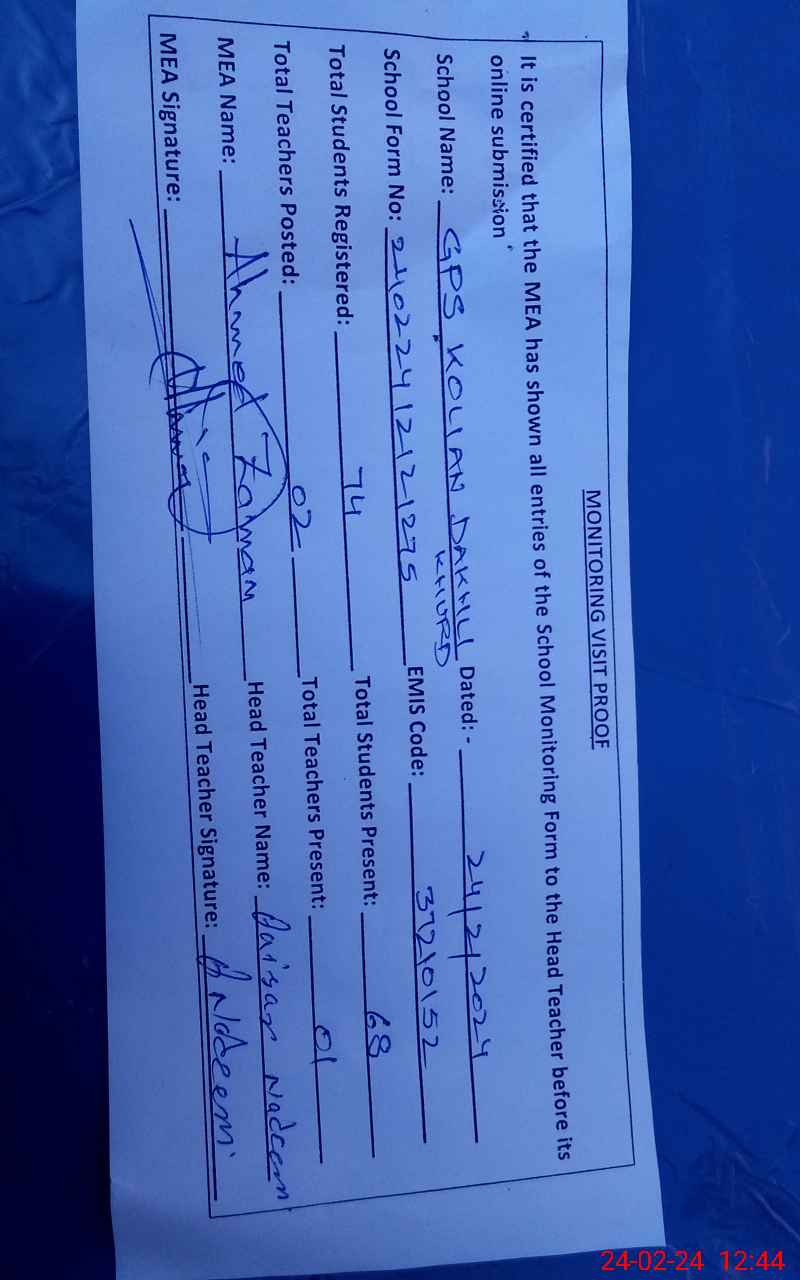 MONITORING VISIT PROOF
It is certified that the MEA has shown all entries of the School Monitoring Form to the Head Teacher before its
online submission
School Name: GPS KOLIAN DAKHLI KHURD Dated:- 24/2/2024
School Form No: 24022412121275 EMIS Code: 37210152
Total Students Registered: 74 Total Students Present: 68
Total Teachers Posted: 02 Total Teachers Present: 01
MEA Name: Ahmed Zaman Head Teacher Name: Qaisar Nadeem
MEA Signature: Head Teacher Signature: QNadeem
24-02-24 12:44